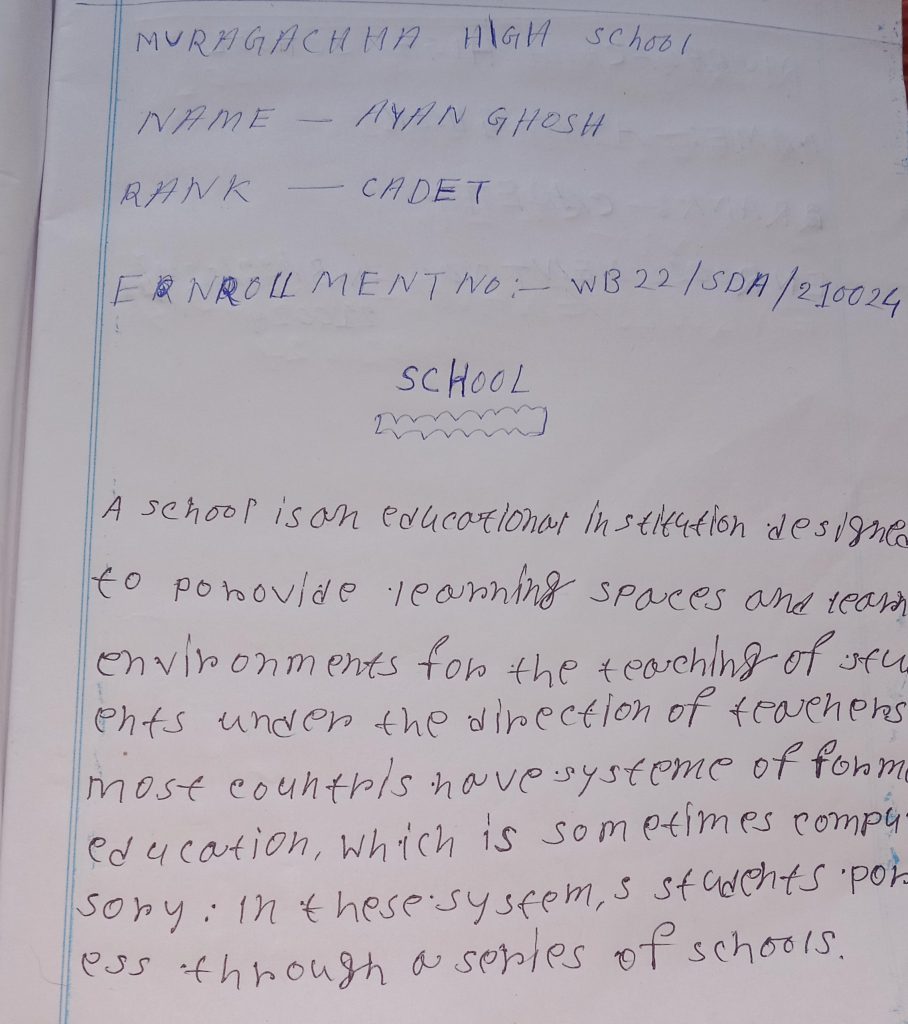 MURAGACHHA HIGH School
NAME — AYAN GHOSH
RANK — CADET
ENROLLMENT NO :- WB22/SDA/210024
SCHOOL
A school is an educational institution designed
to porovide learning spaces and learn
environments for the teaching of stu
ents under the direction of teachers
most countris have systeme of forma
education, which is sometimes compu
sory. In these system,s students por
ess through a series of schools.